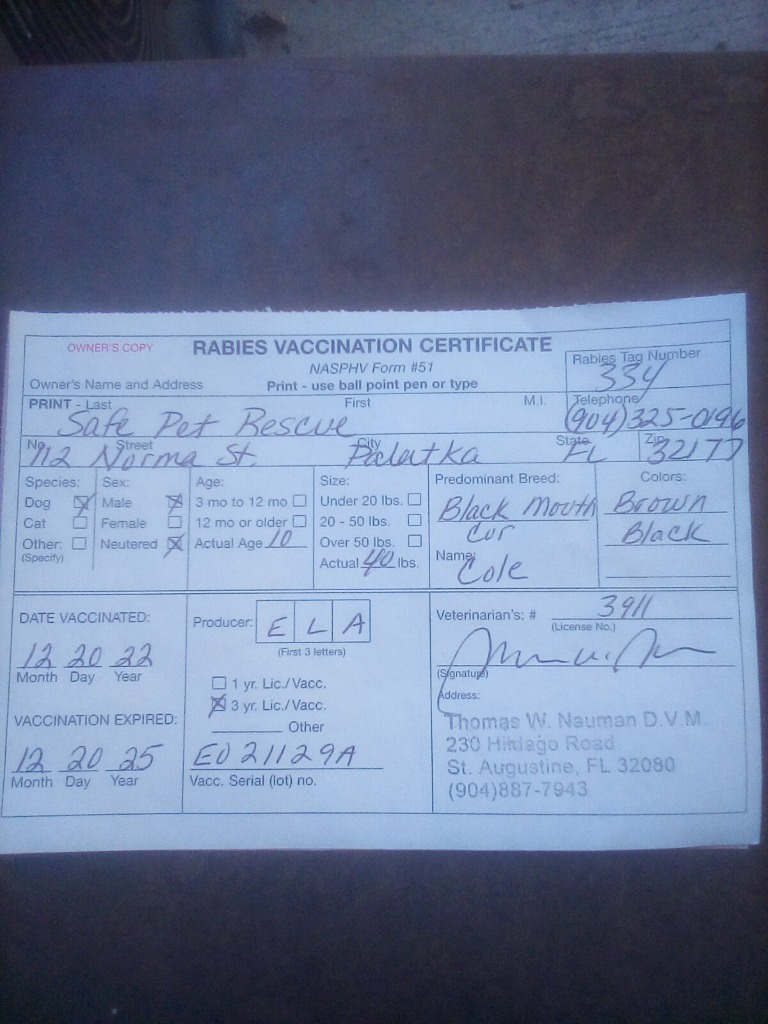 OWNER'S COPY RABIES VACCINATION CERTIFICATE
NASPHV Form #51
Rabies Tag Number
334
Owner's Name and Address Print - use ball point pen or type
PRINT - Last First M.I. Telephone
Safe Pet Rescue (904)325-0196
No. Street City State Zip
712 Norma St. Palatka FL 32177
Species: Sex: Age: Size: Predominant Breed: Colors:
Dog Male 3 mo to 12 mo Under 20 lbs. Black Mouth Brown
Cat Female 12 mo or older 20 - 50 lbs. Cur Black
Other: Neutered Actual Age 10 Over 50 lbs. Name: Cole
(Specify) Actual 40 lbs.
DATE VACCINATED: Producer: E L A Veterinarian's: # 3911
(First 3 letters) (License No.)
12 20 22
Month Day Year
(Signature)
1 yr. Lic./Vacc.
Address:
3 yr. Lic./Vacc.
VACCINATION EXPIRED: Other
Thomas W. Nauman D.V.M.
230 Hildago Road
12 20 25 E021129A
St. Augustine, FL 32080
Month Day Year Vacc. Serial (lot) no.
(904)887-7943